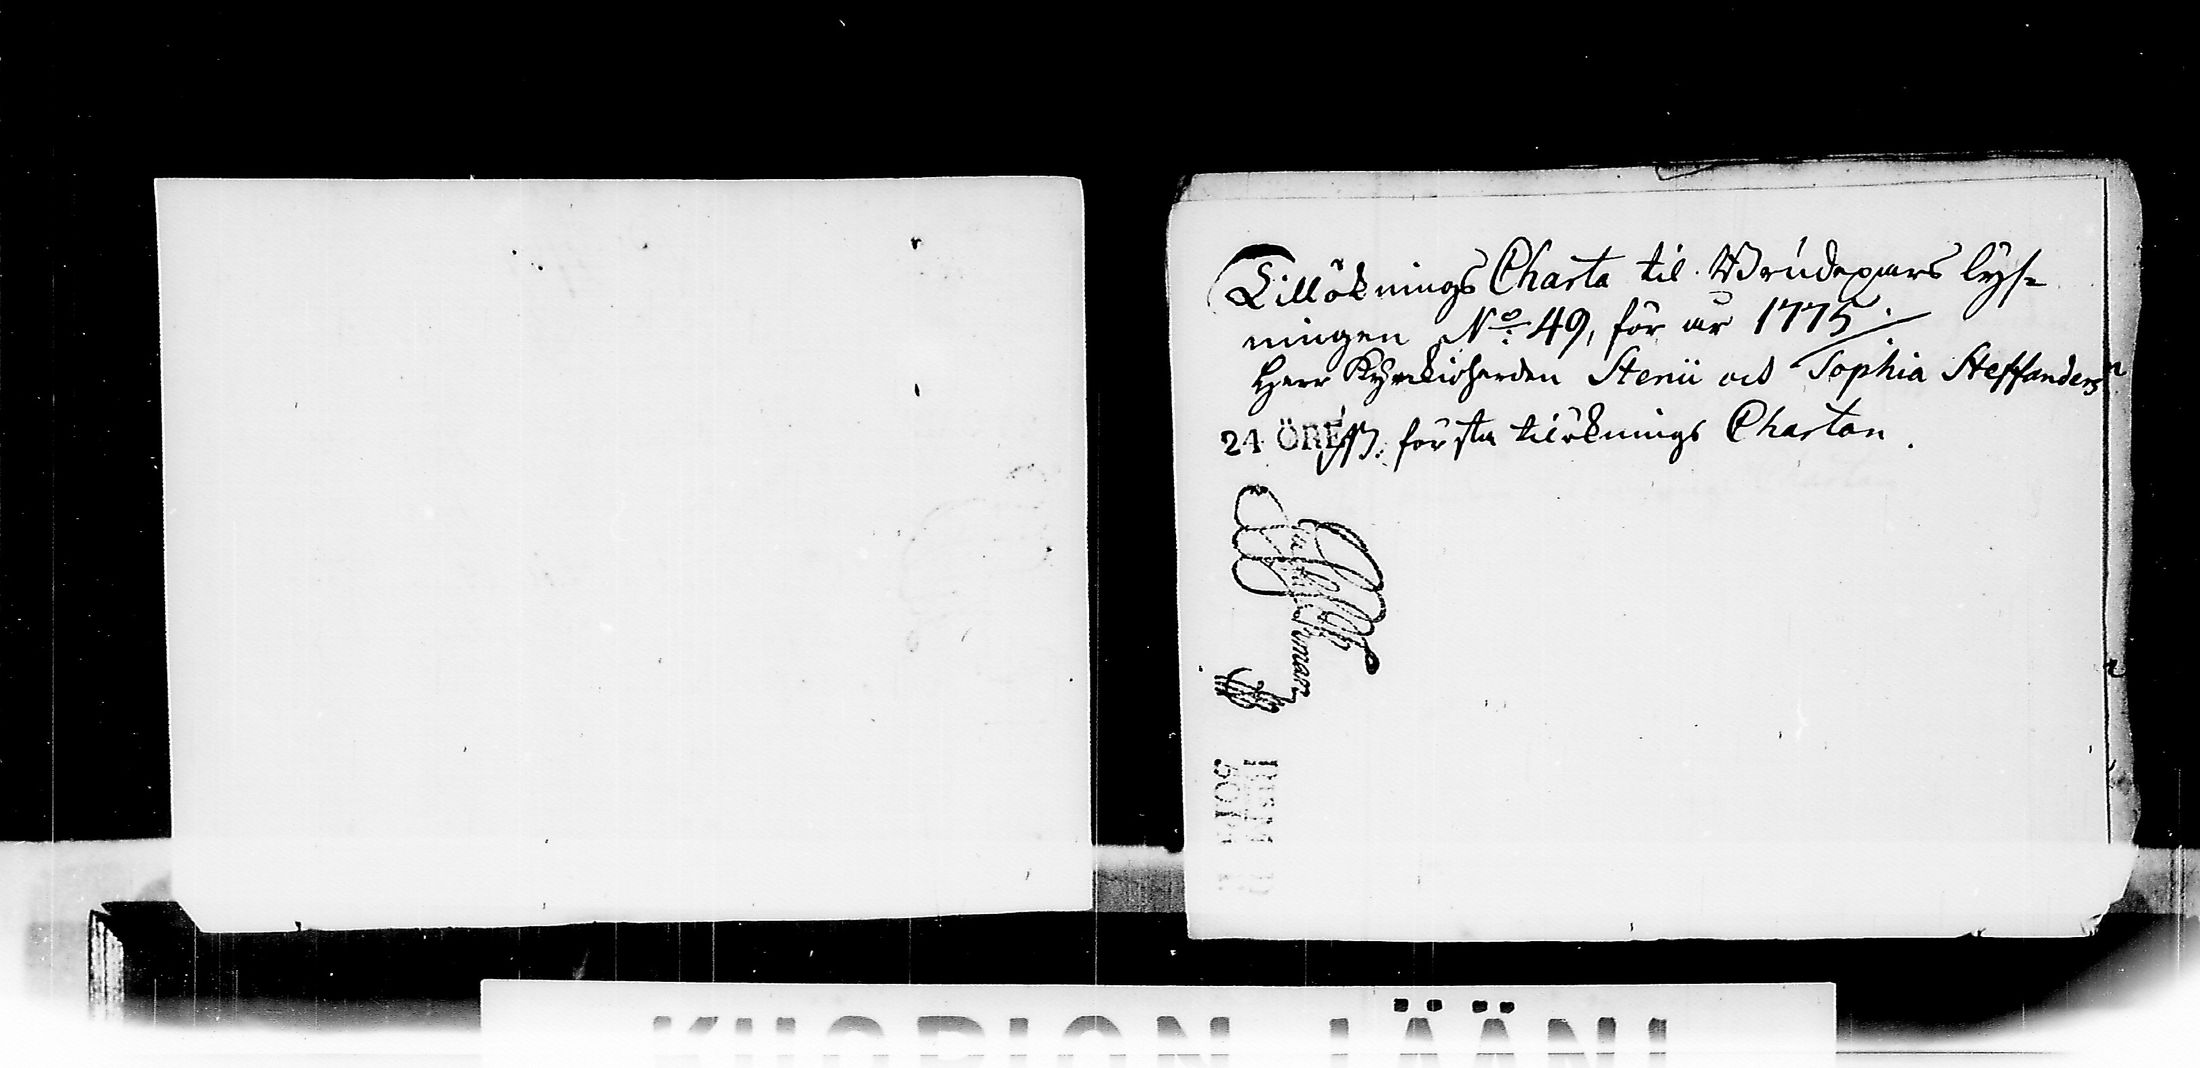 Tillöknings Charta til Brudepars lys-
ningen No: 49, för år 1775.
Herr Kyrckioherden Stenii och Sophia Steffanders
24 ÖRE första tilöknings Chartan.
KUOPION LÄÄNI